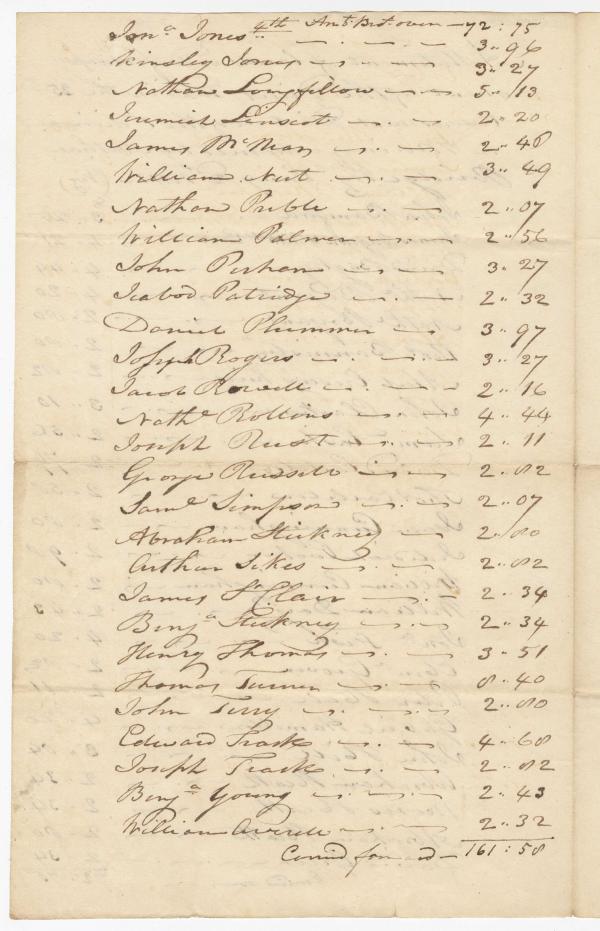 Jon.a Jones 4th Amt. Brt. over — 72 : 75
3 .. 96
Kinsley Jones — 3 .. 27
Nathan Longfellow — 5 .. 13
Jeremiah Linscot — 2 .. 20
James McNear — 2 .. 48
William Nut — 3 .. 49
Nathan Preble — 2 .. 07
William Palmer — 2 .. 56
John Perham — 3 .. 27
Icabod Patridge — 2 .. 32
Daniel Plummer — 3 .. 97
Joseph Rogers — 3 .. 27
Jacob Rowell — 2 .. 16
Nath.l Rollins — 4 .. 44
Joseph Rust — 2 .. 11
George Russell — 2 .. 82
Sam.l Simpson — 2 .. 07
Abraham Stickney — 2 .. 80
Arthur Sikes — 2 .. 82
James St Clair — 2 .. 34
Benj.a Stickney — 2 .. 34
Henry Thomas — 3 .. 51
Thomas Turner — 8 .. 40
John Terry — 2 .. 80
Edward Trask — 4 .. 68
Joseph Trask — 2 .. 82
Benj.a Young — 2 .. 43
William Averell — 2 .. 32
Carried forward — 161 : 58